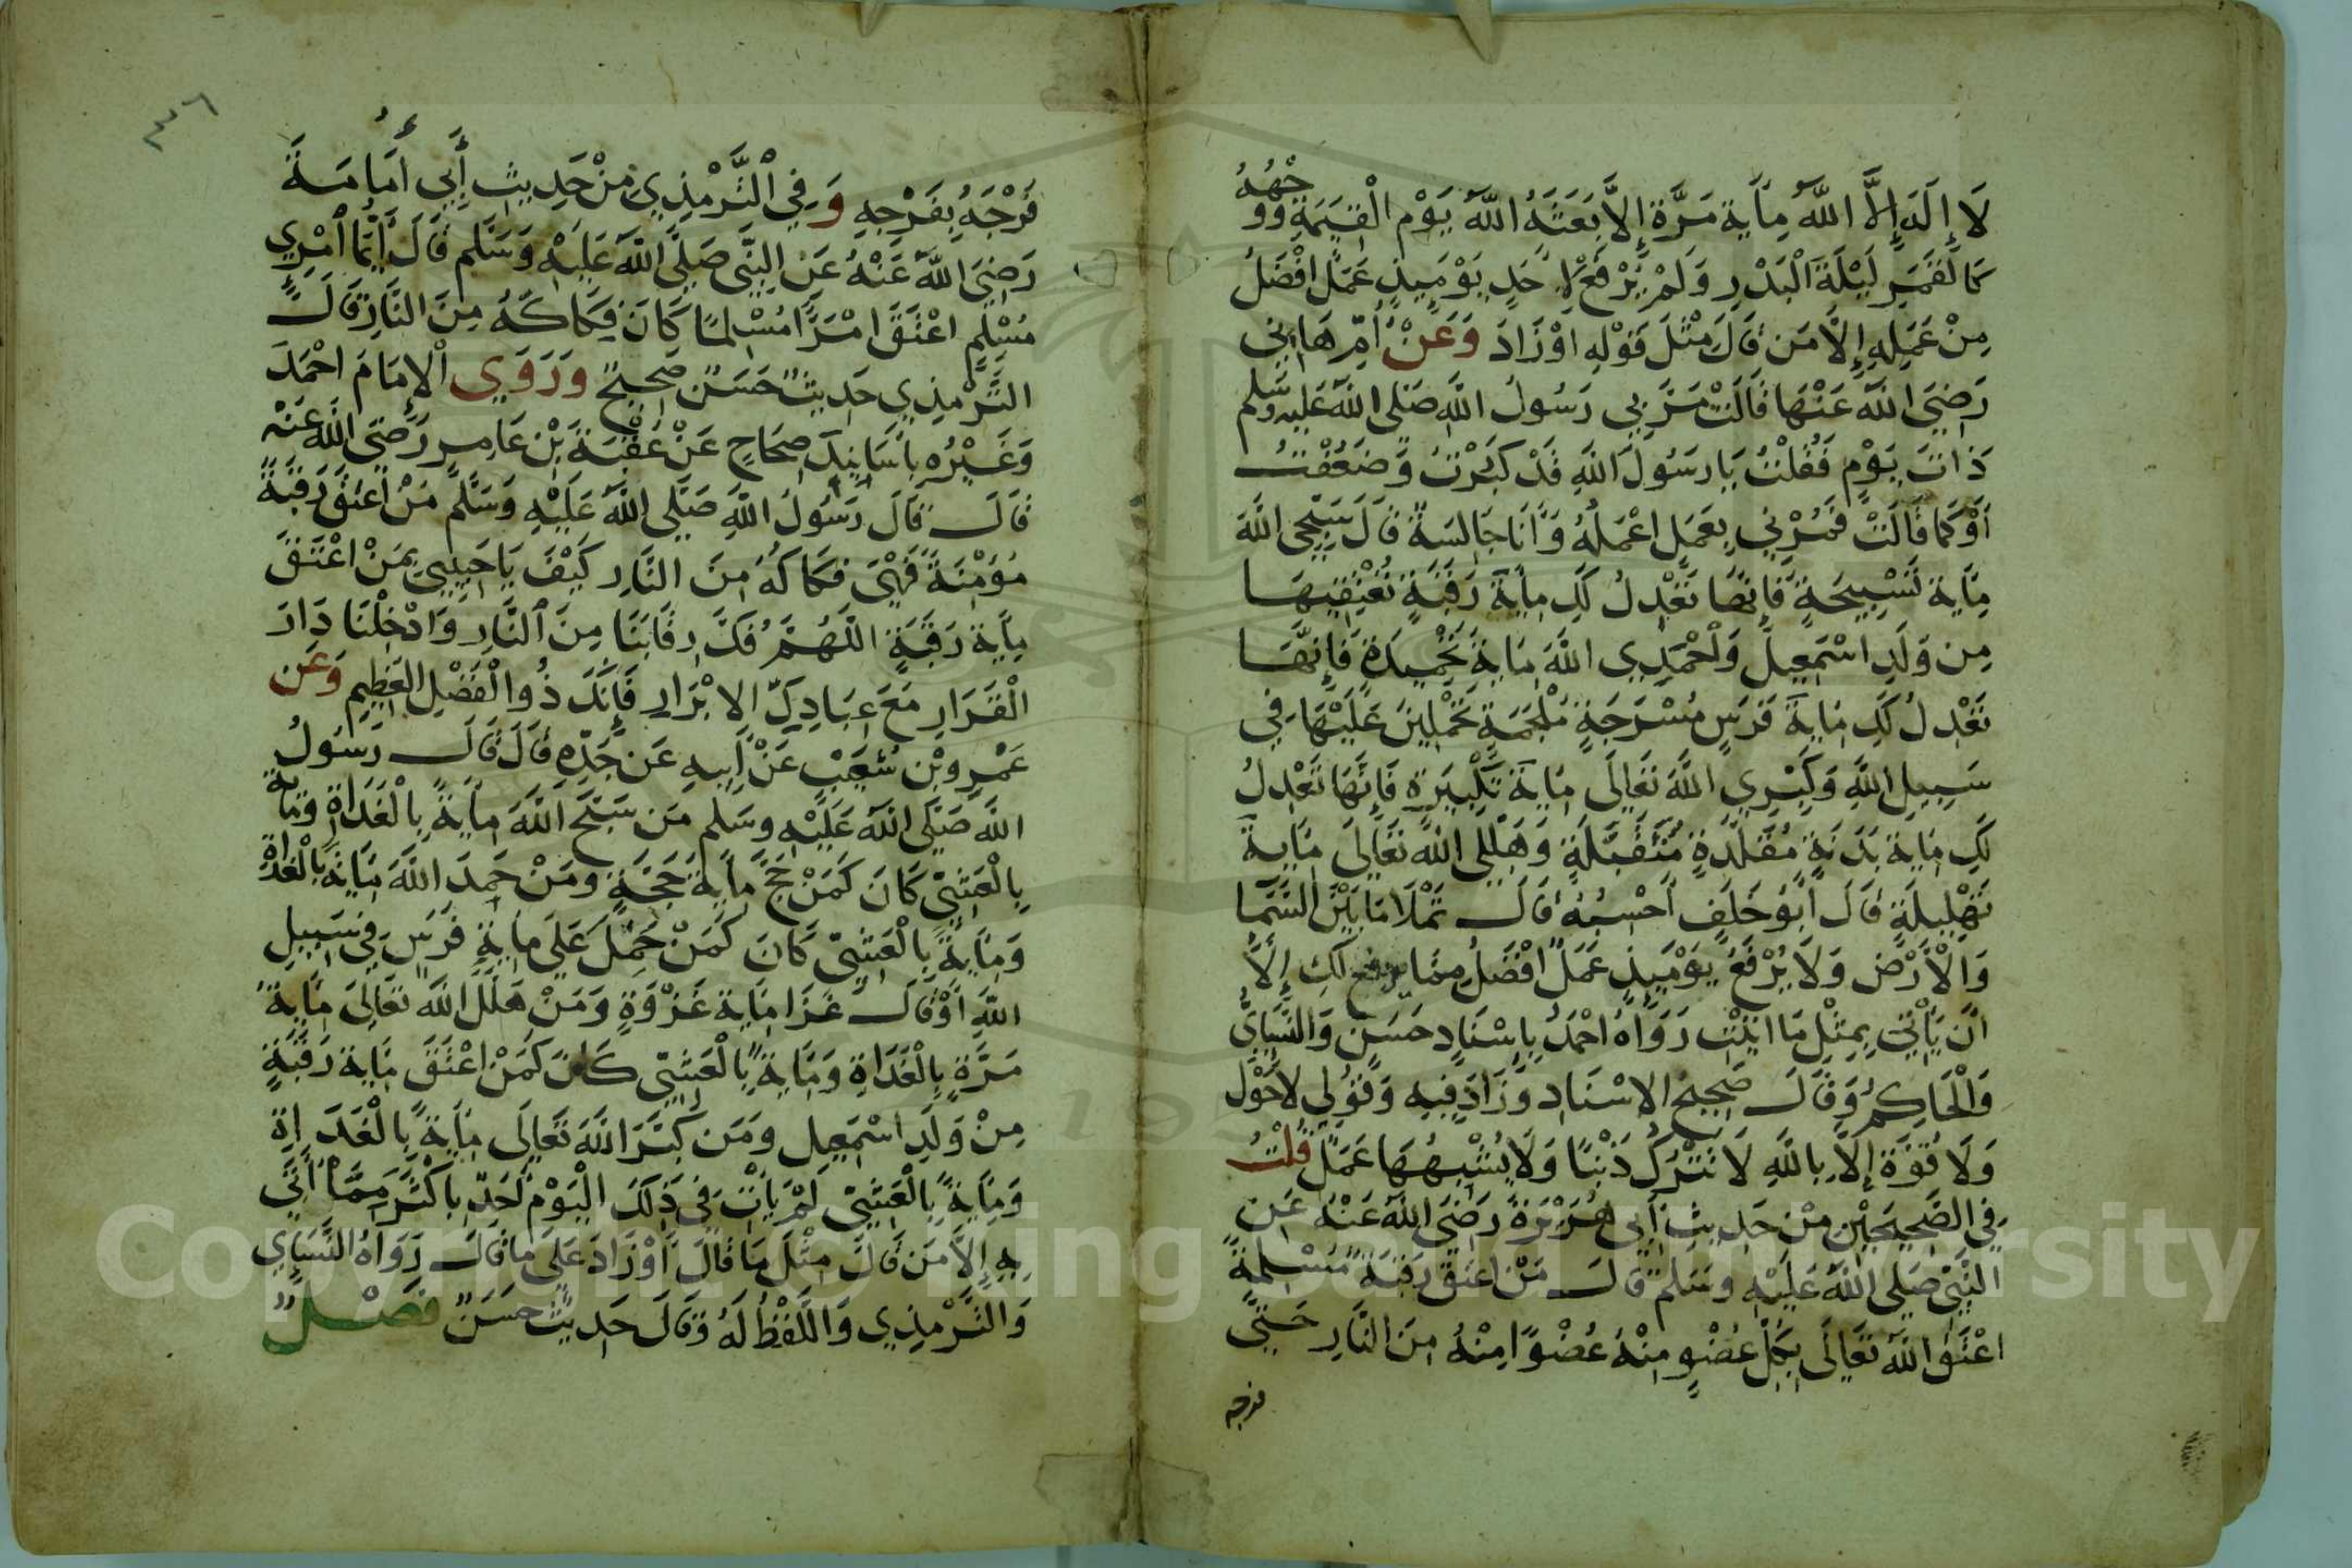 لَا إِلَهَ إِلَّا اللَّهُ مِأيَةَ مَرَّةٍ إِلَّا بَعَثَهُ اللَّهُ يَوْمَ الْقِيَمَةِ وَوَجْهُهُ
كَالْقَمَرِ لَيْلَةَ الْبَدْرِ وَلَمْ يُرْفَعْ لِأَحَدٍ يَوْمَيِذٍ عَمَلٌ افْضَلُ
مِنْ عَمَلِهِ إِلَّا مَن قَالَ مِثْلَ قَوْلِهِ اوْ زَادَ وَعَنْ أُمِّ هَانِي
رَضِيَ اللَّهُ عَنْهَا قَالَتْ مَرَّ بِي رَسُولُ اللَّهِ صَلَى اللَّهُ عَلَيْهِ وَسَلم
ذَاتَ يَوْمٍ فَقُلْتُ يَا رَسُولَ اللَّهِ قَدْ كَبُرْتُ وَضَعُفْتُ
أَوْ كَمَا قَالَتْ فَمُرْنِي بِعَمَلٍ اعْمَلُهُ وَأَنَا جَالِسَةٌ قَالَ سَبِّحِي اللَّهَ
مِأيَةَ تَسْبِيحَةٍ فَإِنَّهَا تَعْدِلُ لَكِ مِأيَةَ رَقَبَةٍ تُعْتِقِيهَا
مِن وَلَدِ اسْمَعِيلَ وَاحْمَدِي اللَّهَ مِايَةَ تَحْمِيدَةٍ فَإِنَّهَا
تَعْدِلُ لَكِ مِايَةَ فَرَسٍ مُسْرَجَةٍ مُلْجَمَةٍ تَحْمِلِينَ عَلَيْهَا فِي
سَبِيلِ اللَّهِ وَكَبِّرِي اللَّهَ تَعَالَى مِايَةَ تَكْبِيرَةٍ فَإِنَّهَا تَعْدِلُ
لَكِ مِايَةَ بَدَنَةٍ مُقَلَّدَةٍ مُتَقَبَّلَةٍ وَهَلِّلِي اللَّهَ تَعَالَى مِايَةَ
تَهْلِيلَةٍ قَالَ أَبُو خَلَفٍ أَحْسِبُهُ قَالَ تَمْلَا مَا بَيْنَ السَّمَا
وَالْأَرْضِ وَلَا يُرْفَعُ يَوْمَيِذٍ عَمَلٌ افْضَلُ مِمَّا يُرْفَعُ لَكِ إِلَّا
انْ يَأْتِيَ بِمِثْلِ مَا اتَيْتِ رَوَاهُ احْمَدُ بِإِسْنَادٍ حَسَنٍ وَالنَّسَائِيُّ
وَالْحَاكِمُ وَقَالَ صَحِيحُ الاسْنَادِ وَزَادَ فِيهِ وَقُولِي لَا حَوْلَ
وَلَا قُوَّةَ إِلَّا بِاللَّهِ لَا تَتْرُكُ ذَنْبًا وَلَا يُشْبِهُهَا عَمَلٌ قُلْتُ
فِي الصَّحِيحَيْنِ مِنْ حَدِيثِ أَبِي هُرَيْرَةَ رَضِيَ اللَّهُ عَنْهُ عَنِ
النَّبِيِّ صَلَى اللَّهُ عَلَيْهِ وسَلم قَالَ مَنْ اعْتَقَ رَقَبَةً مُسْلِمَةً
اعْتَقَ اللَّهُ تَعَالَى بِكُلِّ عُضْوٍ مِنْهُ عُضْوًا مِنْهُ مِنَ النَّارِ حَتَّى
فرجه
٣٦
فَرْجَهُ بِفَرْجِهِ وَفِي التِّرْمِذِي مِنْ حَدِيثِ أَبِي أُمَامَةَ
رَضِيَ اللَّهُ عَنْهُ عَنِ النَّبِيِّ صَلَّى اللَّهُ عَلَيْهِ وَسَلَّم قَالَ أَيُّمَا امْرِي
مُسْلِمٍ اعْتَقَ امْرَأً مُسْلِمًا كَانَ فِكَاكَهُ مِنَ النَّارِ قَالَ
التِّرْمِذِي حَدِيثٌ حَسَنٌ صَحِيحٌ وَرَوَى الْإِمَامُ احْمَدُ
وَغَيْرُهُ بِأَسَانِيدَ صِحَاحٍ عَنْ عُقْبَةَ بْنِ عَامِرٍ رَضِيَ اللَّهُ عَنْهُ
قَالَ قَالَ رَسُولُ اللَّهِ صَلَّى اللَّهُ عَلَيْهِ وَسَلَّمَ مَنْ أَعْتَقَ رَقَبَةً
مُؤْمِنَةً فَهْيَ فِكَاكُهُ مِنَ النَّارِ كَيْفَ يَا حَبِيبِي بِمَنْ اعْتَقَ
مِأيَةَ رَقَبَةٍ اللَّهُمَّ فُكَّ رِقَابَنَا مِنَ النَّارِ وَادْخِلْنَا دَارَ
الْقَرَارِ مَعَ عِبَادِكَ الابْرَارِ فَإِنَّكَ ذُو الْفَضْلِ الْعَظِيمِ وَعَن
عَمْرِو بْنِ شُعَيْبٍ عَنْ أَبِيهِ عَن جَدِّهِ قَالَ قَالَ رَسُولُ
اللَّهِ صَلَّى اللَّهُ عَلَيْهِ وسَلم مَن سَبَّحَ اللَّهَ مِأيَةً بِالْغَدَاةِ وَمِايَةً
بِالْعَشِيِّ كَانَ كَمَنْ حَجَّ مِأيَةَ حَجَّةٍ وَمَنْ حَمِدَ اللَّهَ مِايَةً بِالْغَدَاةِ
وَمِايَةً بِالْعَشِيِّ كَانَ كَمَنْ حَمَلَ عَلَى مِايَةِ فَرَسٍ فِي سَبِيلِ
اللَّهِ أَوْ قَالَ غَزَا مِايَةَ غَزْوَةٍ وَمَنْ هَلَّلَ اللَّهَ تَعَالَى مِايَةَ
مَرَّةٍ بِالْغَدَاةِ وَمِايَةً بِالْعَشِيِّ كَانَ كَمَنْ اعْتَقَ مِايَةَ رَقَبَةٍ
مِنْ وَلَدِ اسْمَعِيلَ وَمَن كَبَّرَ اللَّهَ تَعَالَى مِأيَةً بِالْغَدَاةِ
وَمِايَةً بِالْعَشِيِّ لَمْ يَأْتِ فِي ذَلِكَ الْيَوْمِ أَحَدٌ بِاكْثَرَ مِمَّا أَتَى
بِهِ إِلَّا مَن قَالَ مِثْلَ مَا قَالَ أَوْ زَادَ عَلَى مَا قَالَ رَوَاهُ النَّسَايِي
وَالتِّرْمِذِي وَاللَّفْظُ لَهُ وَقَالَ حَدِيثٌ حَسَنٌ فَصْلٌ
Copyright © King Saud University